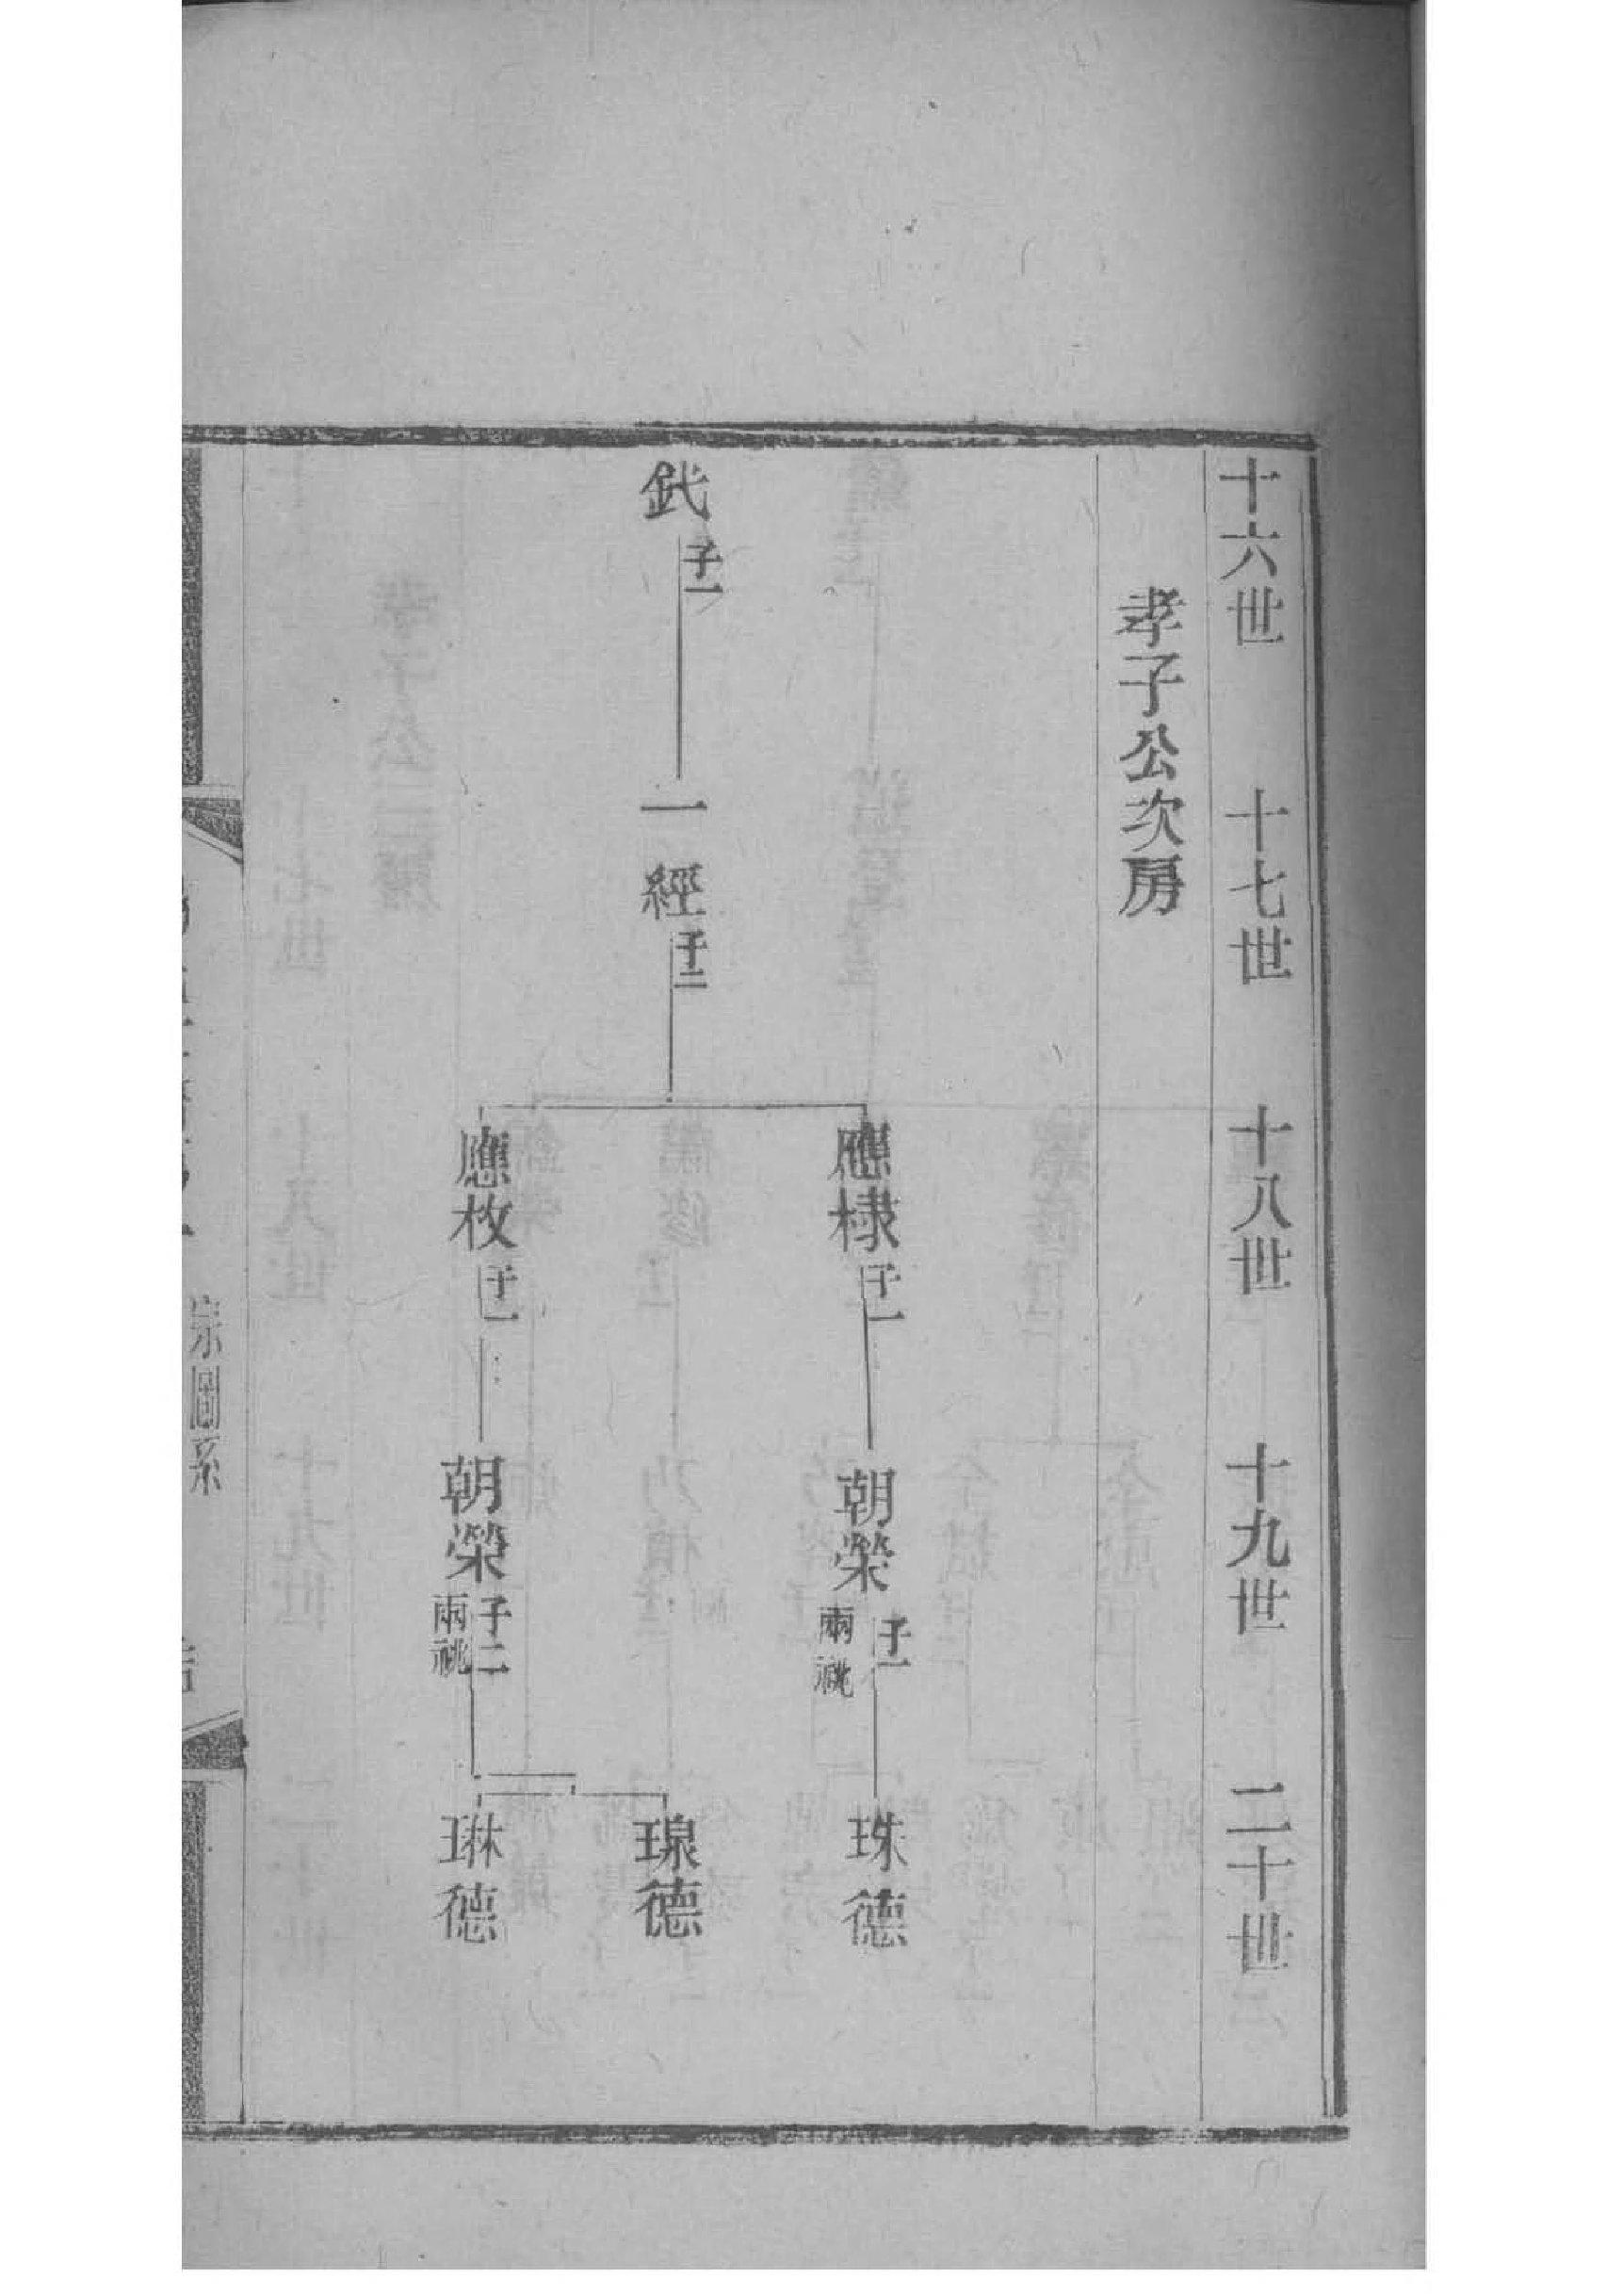 十六世 十七世 十八世 十九世 二十世
孝子公次房
子一
一經 子二
應棣 子一
朝榮 子一 兩祧
珠德
應枚 子一
朝榮 子二 兩祧
瑔德
琳德
宗圖系